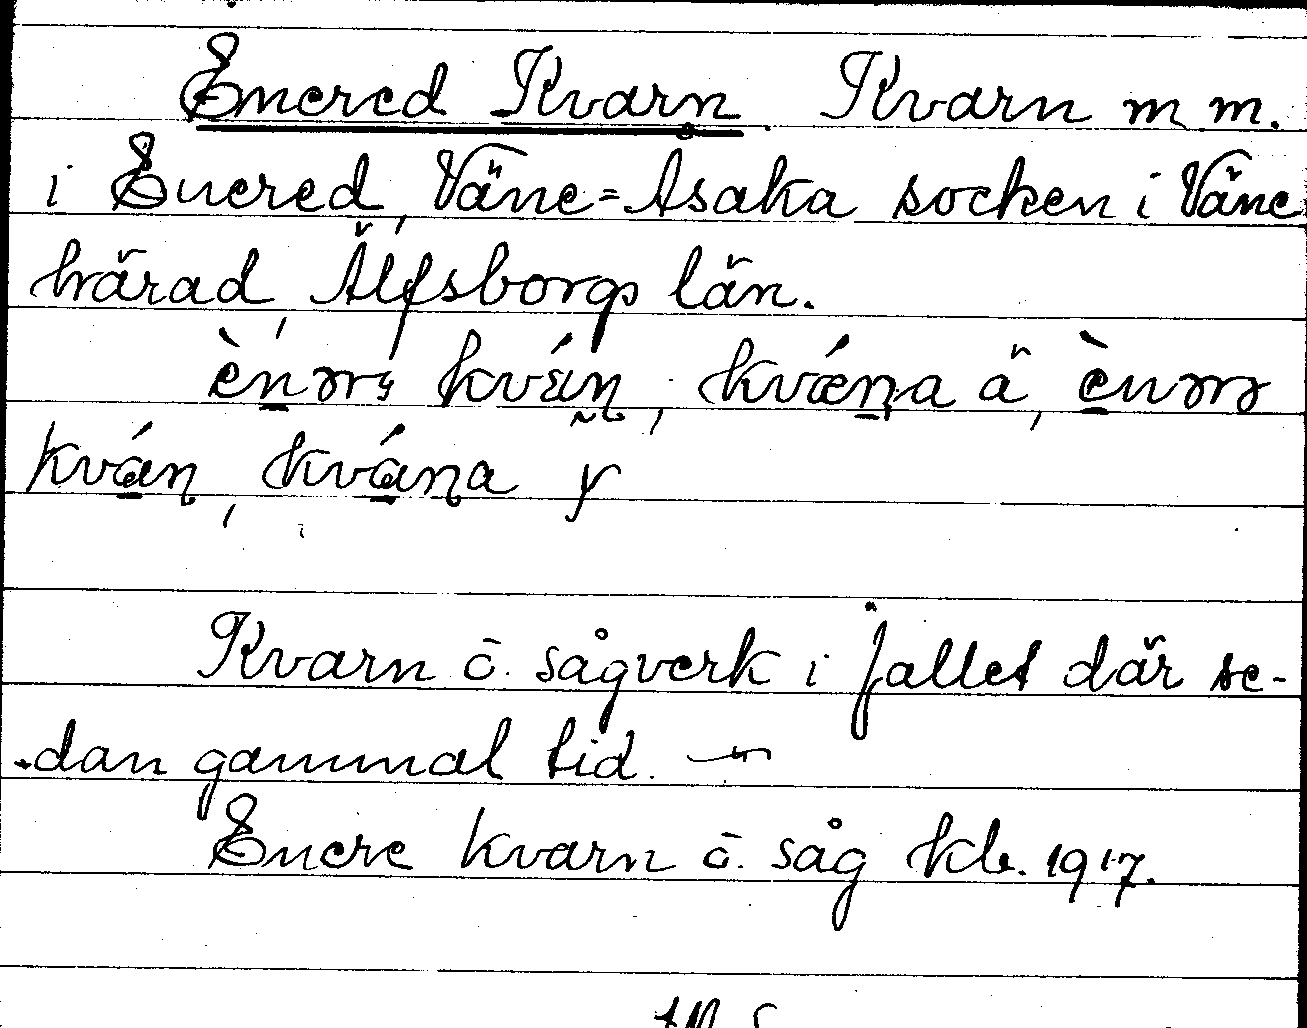 Enered Kvarn. Kvarn m m.
i Enered, Väne=Asaka socken i Väne
härad, Älfsborgs län.
kvǽṇa ä,
kván, kváṇa y
Kvarn o. sågverk i fallet där se-
dan gammal tid.
Enere kvarn o. såg kb. 1917.